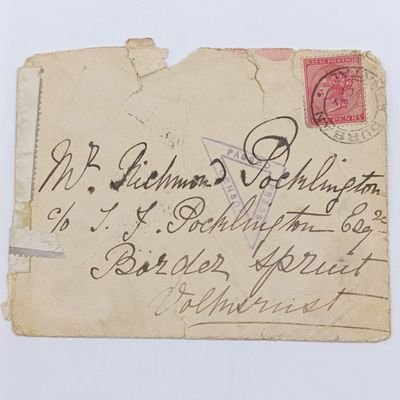 NATAL POSTAGE
ONE PENNY
DURBAN
NATAL
PASSED PRESS CENSOR
Mr. Richmond Pocklington
c/o S. J. Pocklington Esqre
Border Spruit
Volksrust